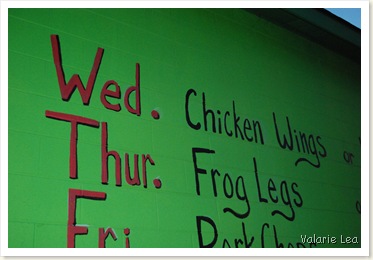 Wed. Chicken Wings or
Thur. Frog Legs
Fri. Pork Chops
Valarie Lea